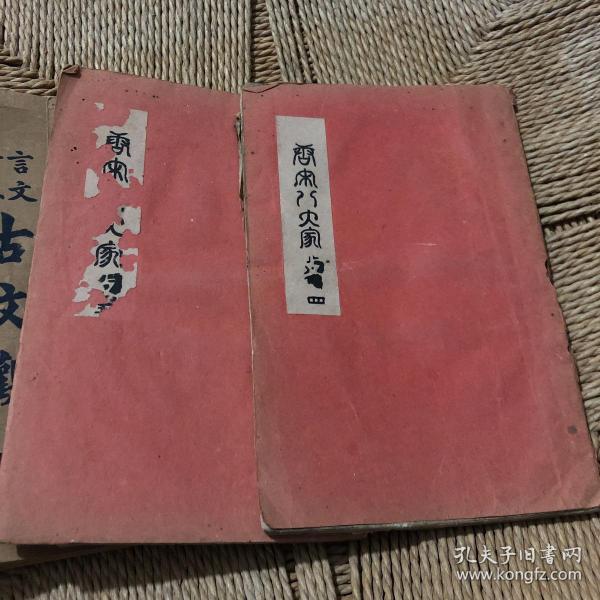 言文
古文觀
唐宋 家
唐宋八大家 四
孔夫子旧书网
www.kongfz.com